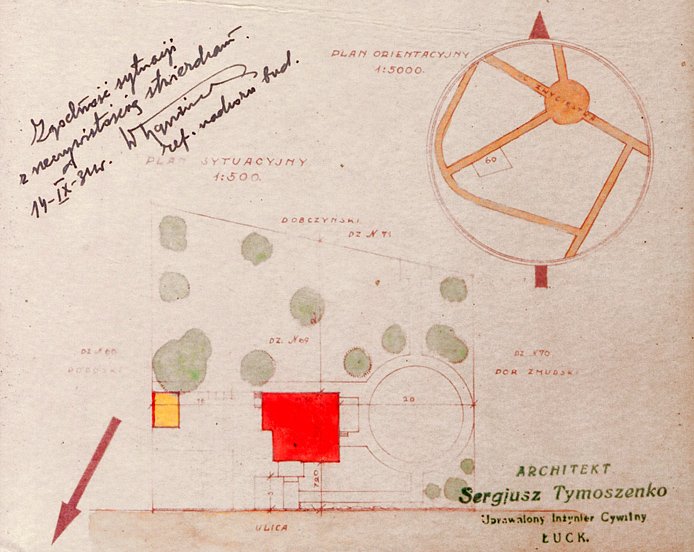 Zgodność sytuacji
z rzeczywistością stwierdzam.
14-IX-31r.
ref. nadzoru bud.
PLAN ORIENTACYJNY
1:5000.
UL. ZWYCIĘSTWA
69
PLAN SYTUACYJNY
1:500.
DOBCZYŃSKI
DZ. N 71
DZ. N 69
DZ. N 70
DOR ŻMUDSKI
20
7.20
ULICA
ARCHITEKT
Sergjusz Tymoszenko
Uprawniony Inżynier Cywilny
ŁUCK.